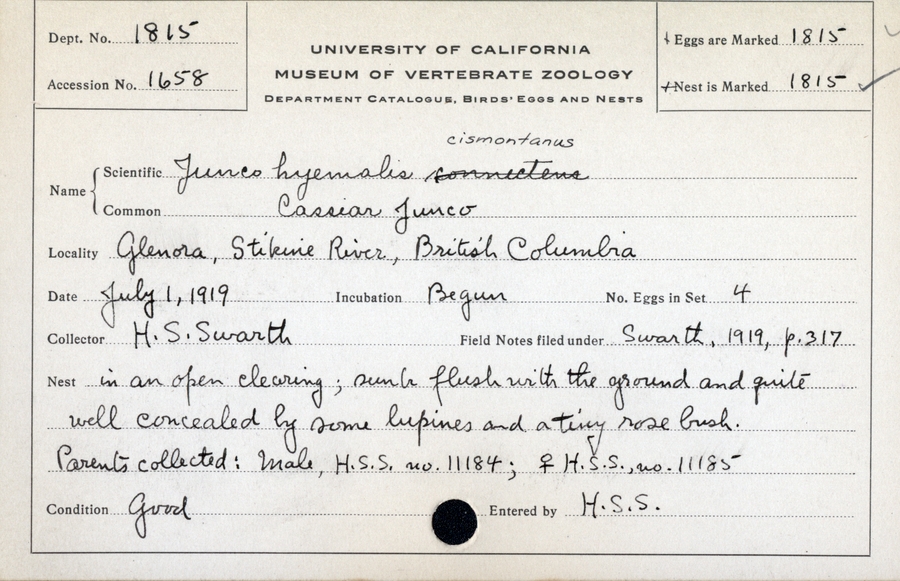 Dept. No. 1815
Accession No. 1658
UNIVERSITY OF CALIFORNIA
MUSEUM OF VERTEBRATE ZOOLOGY
DEPARTMENT CATALOGUE, BIRDS' EGGS AND NESTS
Eggs are Marked 1815
Nest is Marked 1815
cismontanus
Name
Scientific Junco hyemalis connectens
Common Cassiar Junco
Locality Glenora, Stikine River, British Columbia
Date July 1, 1919 Incubation Begun No. Eggs in Set 4
Collector H.S. Swarth Field Notes filed under Swarth, 1919, p. 317
Nest in an open clearing; sunk flush with the ground and quite
well concealed by some lupines and a tiny rose bush.
Parents collected: Male, H.S.S. no. 11184; ♀ H.S.S., no. 11185
Condition Good Entered by H.S.S.